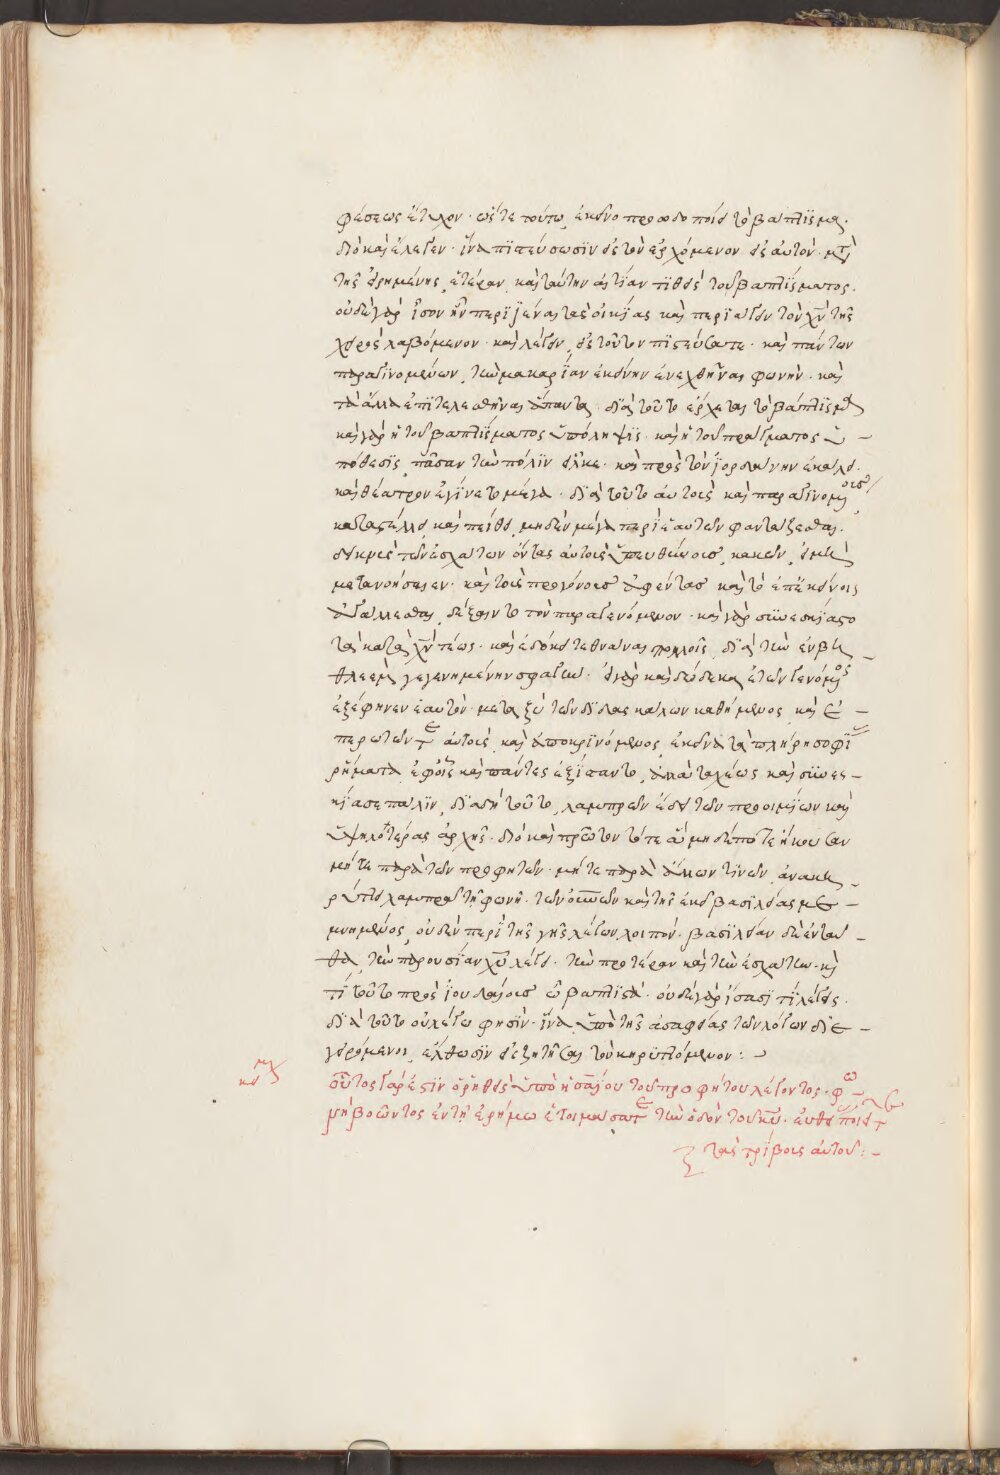 φέσεως ἔτυχον· ὥστε τούτω ἐκεῖνο προοδοποιεῖ τὸ βάπτϊσμα·
διὸ καὶ ἔλεγεν· ἵνα πϊστεύσωσϊν εἰς τὸν ἐρχόμενον εἰς αὐτὸν· μετὰ
τῆς εἰρημένης ἑτέραν καὶ ταύτην αἰτίαν τϊθεὶς τοῦ βαπτϊσματος·
οὐδὲ γὰρ ἴσον ἦν περιϊέναι τὰς οἰκίας καὶ περϊάγειν τὸν χ̅ν̅ τῆς
χειρὸς λαβόμενον· καὶ λέγειν εἰς τοῦτον πϊστεύσατε· καὶ πάντων
παραγϊνομένων τὴν μακαρίαν ἐκείνην ἐνεχθῆναι φωνὴν· καὶ
τὰ ἄλλα ἐπϊτελεσθῆναι ἅπαντα· δϊὰ τοῦτο ἔρχεται τὸ βάπτϊσμα
καὶ γὰρ ἡ τοῦ βαπτϊσματος ὑπόληψϊς· καὶ ἡ τοῦ πράγματος ὑ–
πόθεσϊς πᾶσαν τὴν πόλϊν εἷλκε· καὶ πρὸς τὸν ϊορδάνην ἐκάλει·
καὶ θέατρον ἐγίνετο μέγα· δϊὰ τοῦτο αὐτοὺς καὶ παραγϊνομένους
καταστέλλει καὶ πείθει μηδὲν μέγα περὶ ἑαυτῶν φαντάζεσθαι·
δεικνὺς τῶν ἐσχάτων ὄντας αὐτοὺς ὑπευθύνους κακῶν εἰ μὴ
μετανοήσαιεν· καὶ τοὺς προγόνους ἀφέντας καὶ τὸ ἐπ' ἐκείνοις
ἀγάλλεσθαι δέξαιντο τὸν παραγενόμενον· καὶ γὰρ συνεσκίαστο
τὰ κατὰ χ̅ν̅ τέως· καὶ ἐδόκει τεθνάναι πολλοῖς δϊὰ τὴν ἐν βη–
θλεὲμ γεγενημένην σφαγὴν· εἰ γὰρ καὶ δώδεκα ἐτῶν γενόμενος
ἐξέφηνεν ἑαυτὸν· μεταξὺ τῶν δϊδασκάλων καθήμενος καὶ ἐ–
περωτῶν τε αὐτοὺς καὶ ἀποκρϊνόμενος ἐκεῖνα τὰ πλήρη σοφϊας
ῥήματα ἐφ' οἷς καὶ πάντες ἐξίσταντο ἀλλὰ ταχέως καὶ συνες–
κίασε πάλϊν δϊὰ δὴ τοῦτο λαμπρῶν ἔδει τῶν προοιμίων καὶ
ὑψηλοτέρας ἀρχῆς· διὸ καὶ πρῶτον τότε ἃ μηδέποτε ἤκουσαν
μήτε παρὰ τῶν προφητῶν· μήτε παρὰ ἄλλων τϊνῶν ἀνακη–
ρύττει λαμπρᾶ τῆ φωνῆ· τῶν οὐνῶν καὶ τῆς ἐκεῖ βασϊλείας με–
μνημένος οὐδὲν περὶ τῆς γῆς λέγων λοιπὸν· βασϊλείαν δὲ ἐνταῦ–
θα τὴν παρουσίαν χ̅υ̅ λέγει· τὴν προτέραν καὶ τὴν ἐσχάτην· καὶ
τί τοῦτο πρὸς ϊουδαίους ὦ βαπτϊστὰ· οὐδὲ γὰρ ἴσασϊ τί λέγεις·
δϊὰ τοῦτο οὐ λέγω φησὶν· ἵνα ὑπὸ τῆς ἀσαφείας τῶν λόγων δϊε–
γειρόμενοι ἔλθωσϊν εἰς ζήτησϊν τοῦ κηρυττόμενον:
οὗτος γάρ ἐστϊν ὁ ῥηθεὶς ὑπὸ ἡσαΐου τοῦ προφήτου λέγοντος· φω–
νὴ βοῶντος ἐν τῆ ἐρήμω ἑτοιμάσατε τὴν ὁδὸν κ̅υ̅· εὐθείας ποιεῖτε
τὰς τρίβους αὐτοῦ: